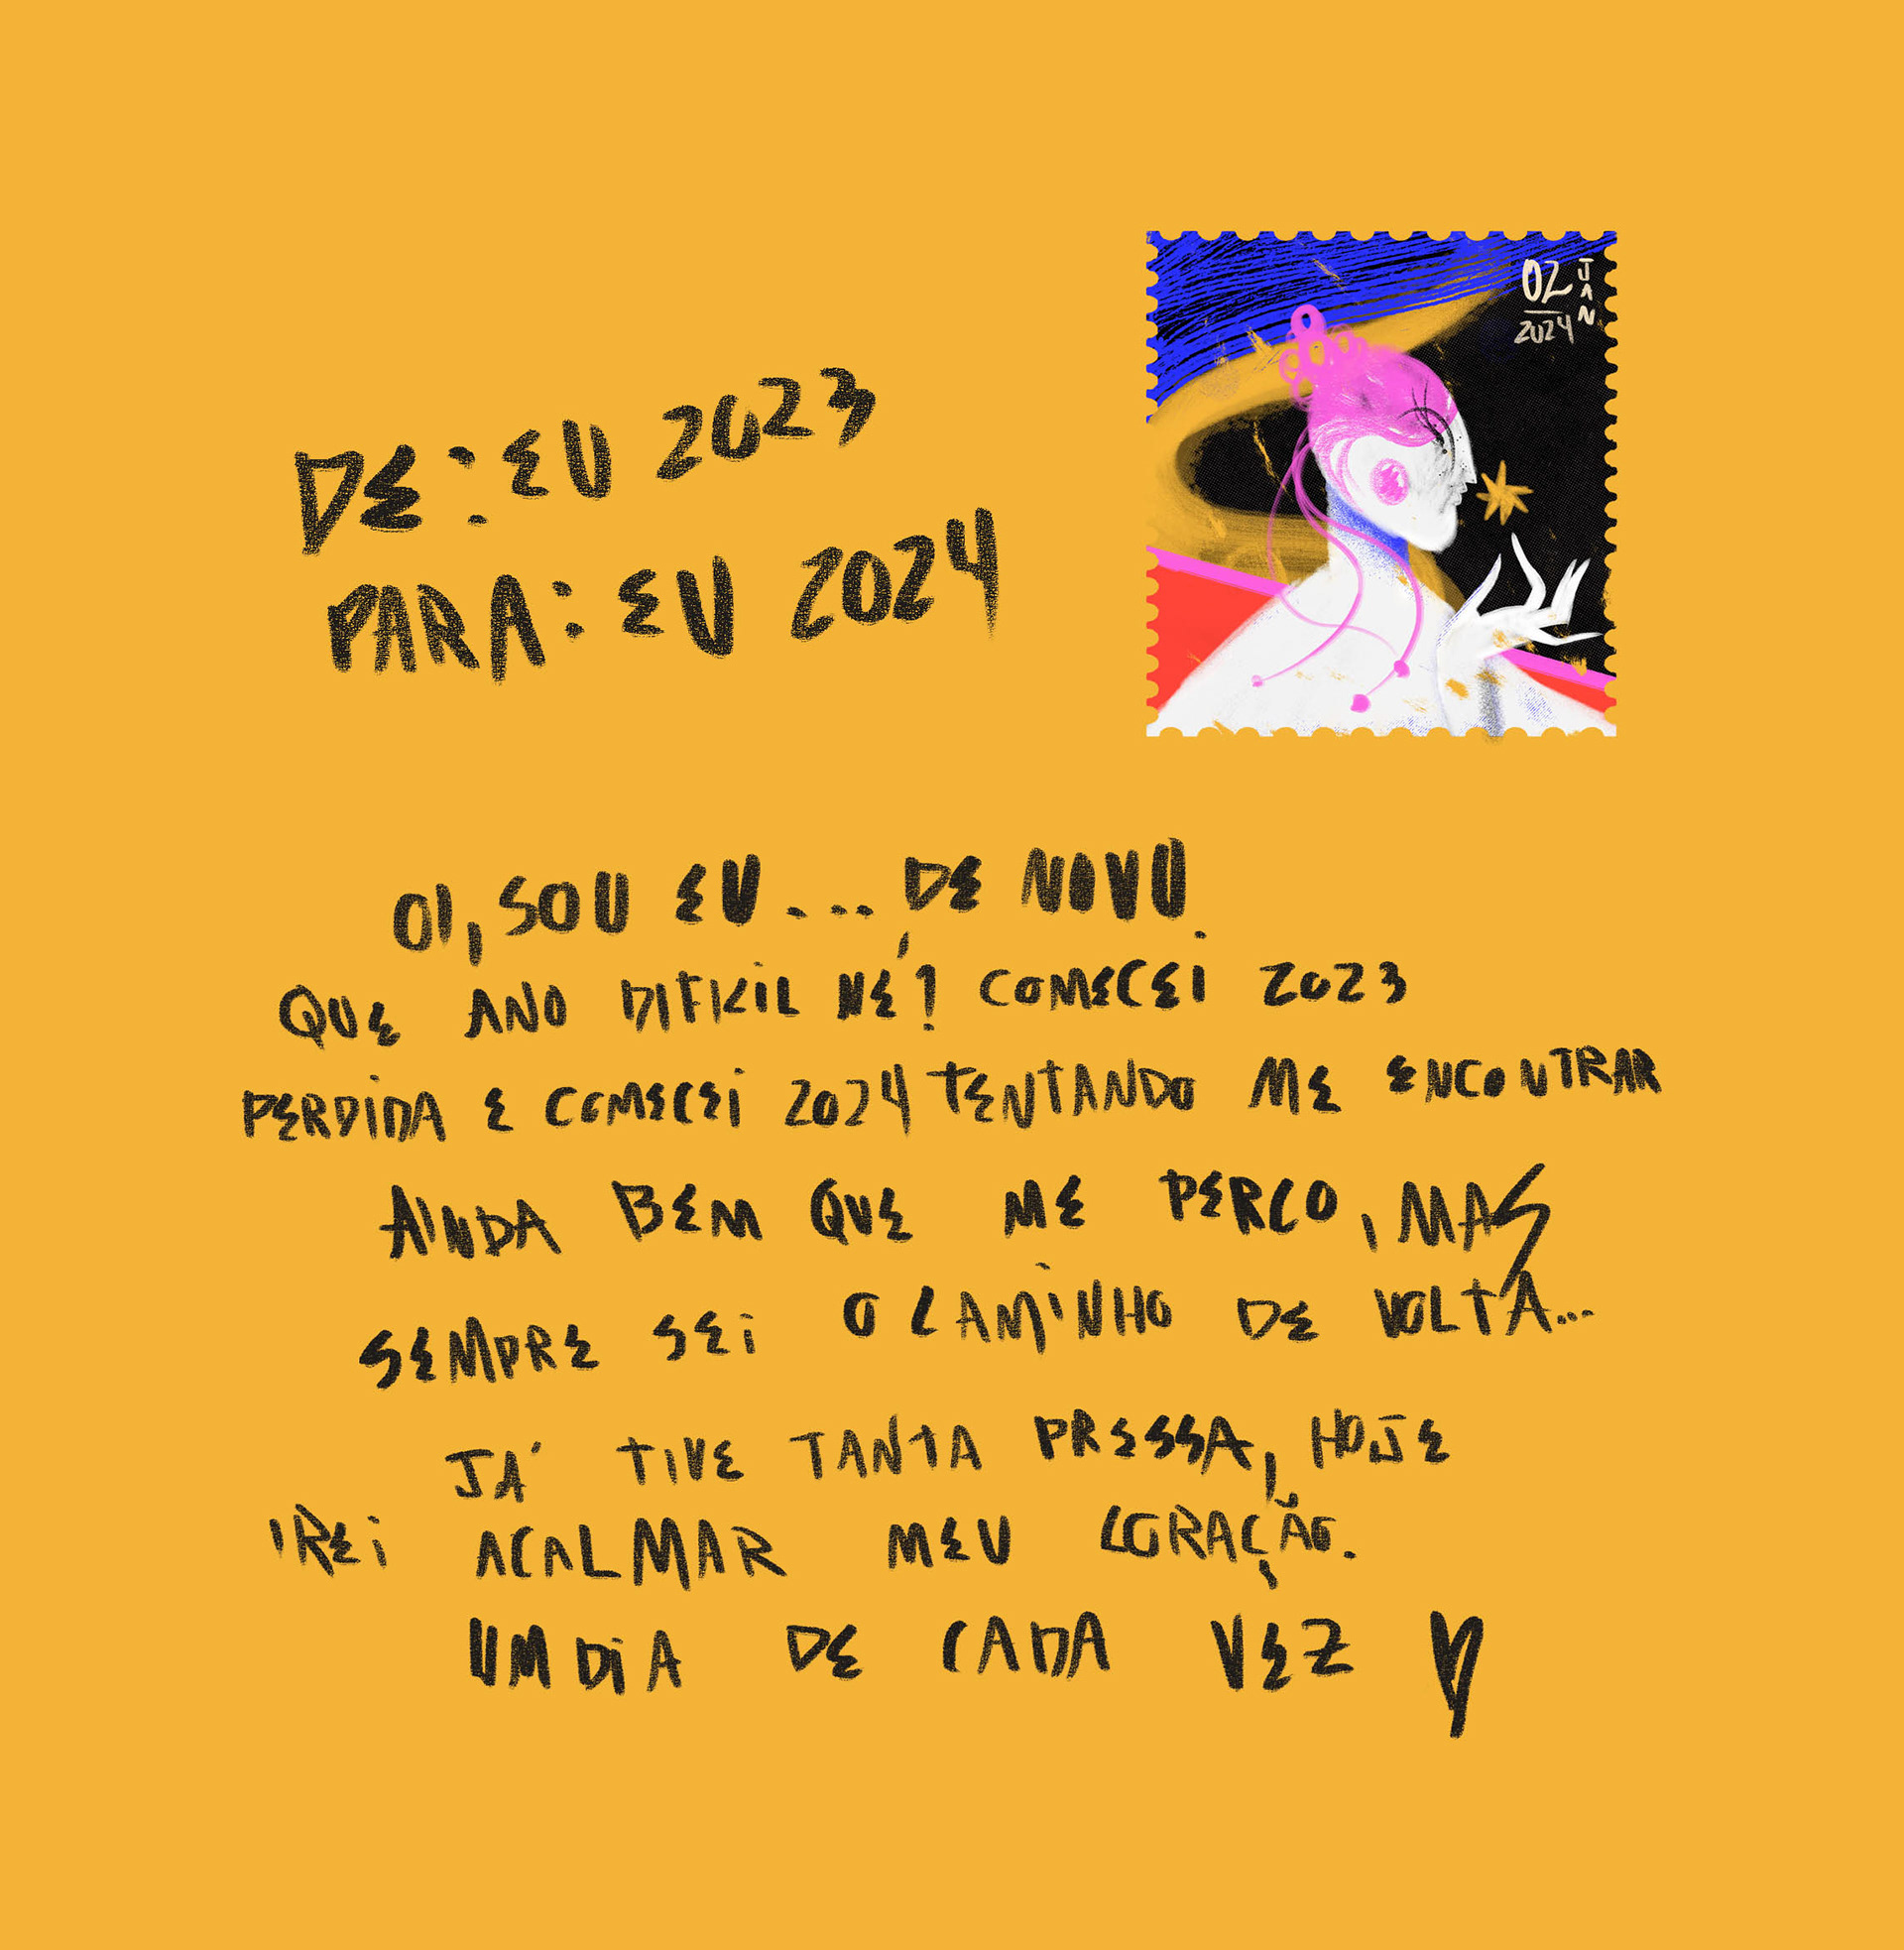 DE: EU 2023
PARA: EU 2024
02 JAN
2024
OI, SOU EU... DE NOVO
QUE ANO DIFICIL NÉ? COMECEI 2023
PERDIDA E COMECEI 2024 TENTANDO ME ENCONTRAR
AINDA BEM QUE ME PERCO, MAS
SEMPRE SEI O CAMINHO DE VOLTA...
JÁ TIVE TANTA PRESSA, HOJE
IREI ACALMAR MEU CORAÇÃO.
UM DIA DE CADA VEZ